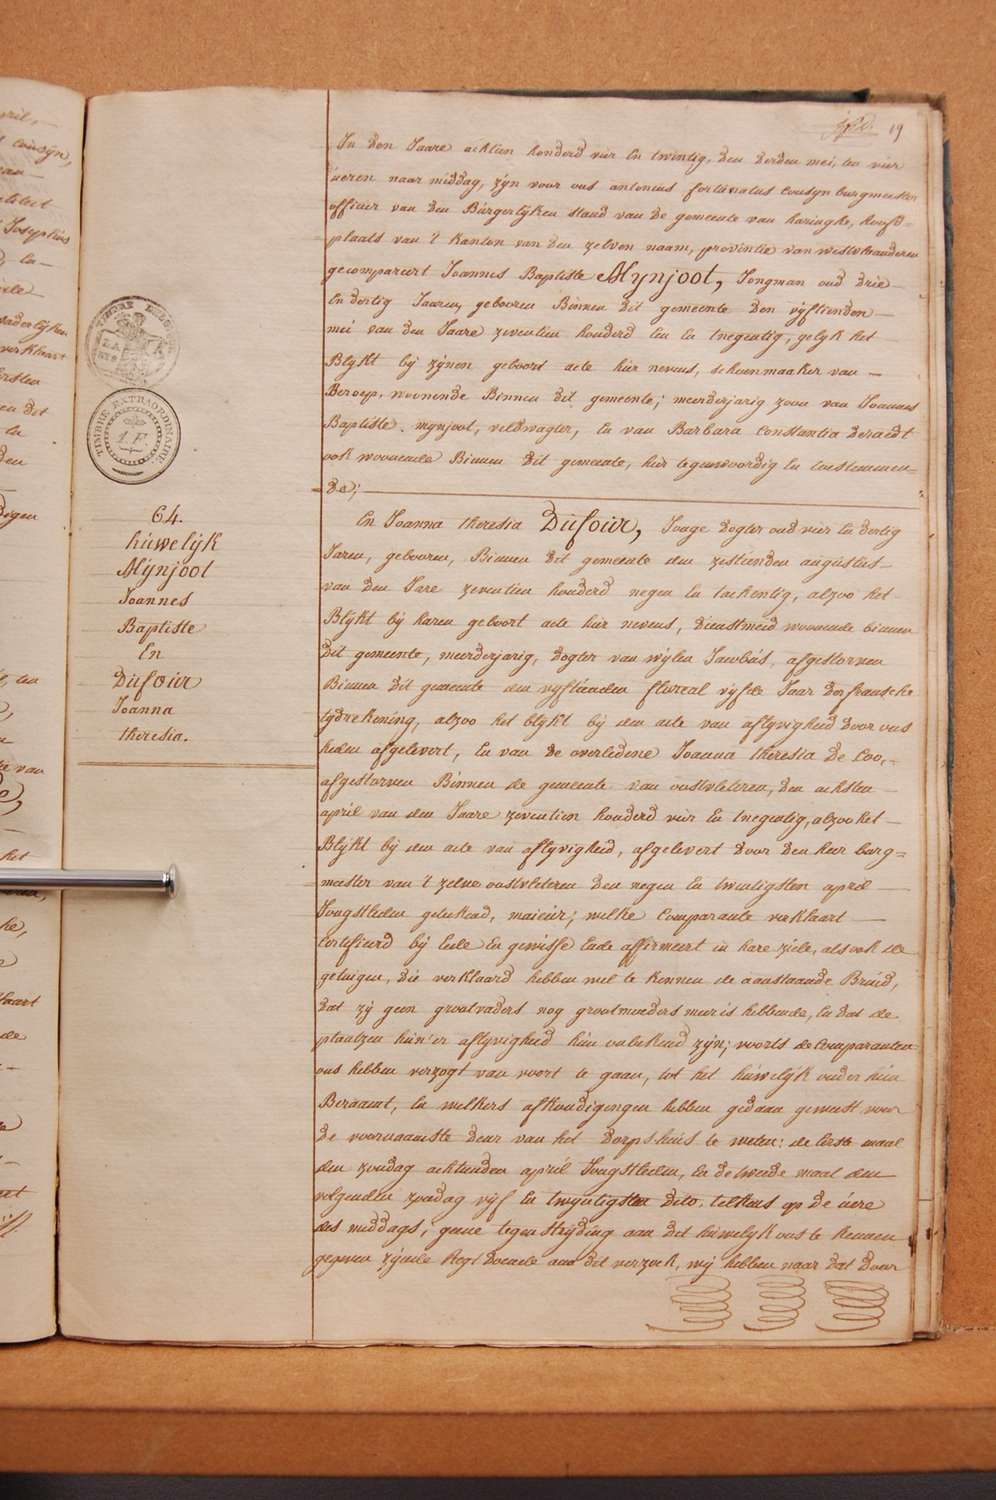 19
In den Jaare achtien honderd vier En twintig, den derden mei, ten vier
úeren naar middag, zÿn voor ons antonius fortunatus Cousyn burgmeester
officier van den Búrgerlÿken stand van de gemeente van haringhe, hoofd-
plaats van 't kanton van den zelven naam, provintie van westvlaanderen
gecompareert Joannes Baptiste Mÿnjoot, Jongman oud drie
En dertig Jaaren, gebooren Binnen dit gemeente den vÿftienden
mei van den Jaare zeventien honderd Een En tnegentig, gelÿk het
Blÿkt bÿ zÿnen geboort acte hier nevens, schoenmaaker van
Beroep, woonende Binnen dit gemeente; meerderjarig zoon van Joannes
Baptiste mynjoot, veldwagter, En van Barbara Constantia Deraedt
ook woonende Binnen dit gemeente, hier tegenwoordig En toestemmen-
de;
TIMBRE EXTRAORDINAIRE
1. F.
64.
húwelÿk
Mÿnjoot
Joannes
Baptiste
En
Dúfoúr
Joanna
theresia.
En Joanna theresia Dúfoúr, Jonge Dogter oud vier En dertig
Jaren, gebooren, Binnen dit gemeente den zestienden aúgústús
van den Jare zeventien honderd negen En tachentig, alzoo het
Blÿkt bÿ haren geboort acte hier nevens, dienstmeid woonende binnen
dit gemeente, meerderjarig, dogter van wÿlen Jacobús, afgestorven
Binnen dit gemeente den vÿftienden floreal vÿfde Jaar der fransche
tÿdrekening, alzoo het blÿkt bÿ den acte van aflÿvigheid door ons
heden afgelevert, En van de overledene Joanna theresia De Coo,
afgestorven Binnen de gemeente van oostvleteren, den achsten
april van den Jaare zeventien honderd vier En tnegentig, alzoo het
Blÿkt bÿ den acte van aflÿvigheid, afgelevert door den heer burg=
meester van 't zelve oostvleteren den negen En twintigsten april
Jongstleden geteekend, maieúr; welke Comparante verklaart
Certifieerd bÿ Eede En gewisse Ende affirmeert in hare ziele, als ook de
getuigen, die verklaard hebben wel te kennen de aanstaande Brúid,
dat zÿ geen grootvaders nog grootmoeders meer is hebbende, En dat de
plaatzen hún'er aflÿvigheid hún onbekend zÿn; voorts de Comparanten
ons hebben verzogt van voort te gaan, tot het húwelÿk onder hún
Beraamt, En welkers afkondigingen hebben gedaan geweest voor
de voornaamste deur van het dorps húis te weten: de Eerste maal
den zondag achtienden april Jongstleden, En de tweede maal den
volgenden zondag vÿf En twÿntigsten dito. telkens op de úere
des middags; geene tegenstrÿding aan dit húwelÿk ons te kennen
gegeven zÿnde Regt doende aan dit verzoek, wÿ hebben naar dat door